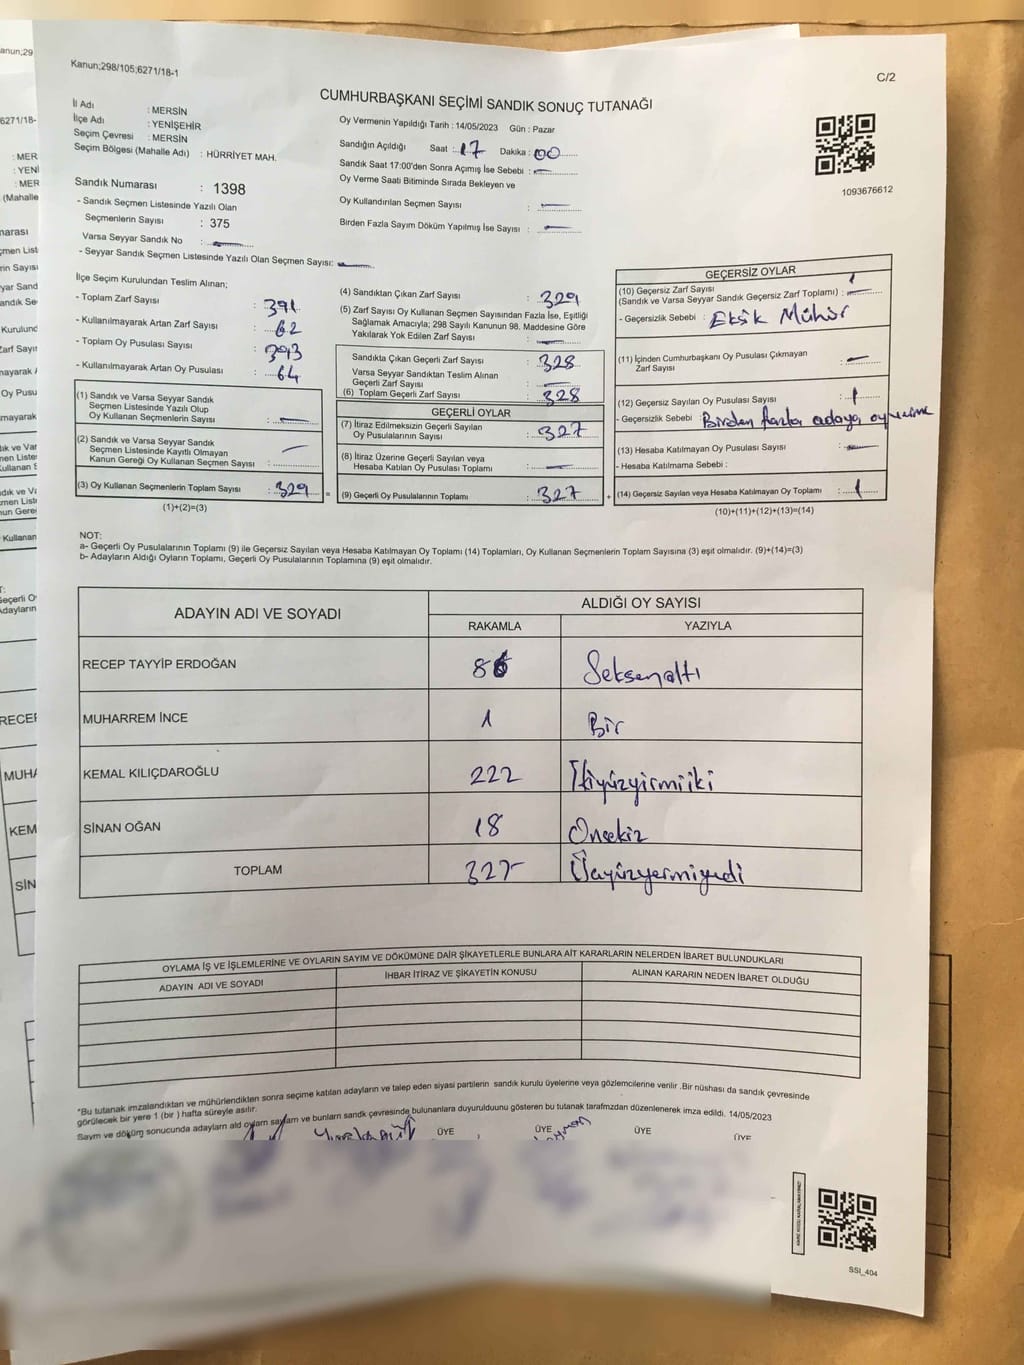 Kanun;298/105;6271/18-1
C/2
CUMHURBAŞKANI SEÇİMİ SANDIK SONUÇ TUTANAĞI
İl Adı : MERSİN
İlçe Adı : YENİŞEHİR
Seçim Çevresi : MERSİN
Seçim Bölgesi (Mahalle Adı) : HÜRRİYET MAH.
Sandık Numarası : 1398
- Sandık Seçmen Listesinde Yazılı Olan
Seçmenlerin Sayısı : 375
Varsa Seyyar Sandık No :
- Seyyar Sandık Seçmen Listesinde Yazılı Olan Seçmen Sayısı:
Oy Vermenin Yapıldığı Tarih : 14/05/2023 Gün : Pazar
Sandığın Açıldığı Saat : 17 Dakika : 00
Sandık Saat 17:00'den Sonra Açımış İse Sebebi :
Oy Verme Saati Bitiminde Sırada Bekleyen ve
Oy Kullandırılan Seçmen Sayısı :
Birden Fazla Sayım Döküm Yapılmış İse Sayısı :
1093676612
İlçe Seçim Kurulundan Teslim Alınan;
- Toplam Zarf Sayısı : 391
- Kullanılmayarak Artan Zarf Sayısı : 62
- Toplam Oy Pusulası Sayısı : 393
- Kullanılmayarak Artan Oy Pusulası : 64
(1) Sandık ve Varsa Seyyar Sandık
Seçmen Listesinde Yazılı Olup
Oy Kullanan Seçmenlerin Sayısı :
(2) Sandık ve Varsa Seyyar Sandık
Seçmen Listesinde Kayıtlı Olmayan
Kanun Gereği Oy Kullanan Seçmen Sayısı :
(3) Oy Kullanan Seçmenlerin Toplam Sayısı : 329
(1)+(2)=(3)
(4) Sandıktan Çıkan Zarf Sayısı : 329
(5) Zarf Sayısı Oy Kullanan Seçmen Sayısından Fazla İse, Eşitliği
Sağlamak Amacıyla; 298 Sayılı Kanunun 98. Maddesine Göre
Yakılarak Yok Edilen Zarf Sayısı :
Sandıkta Çıkan Geçerli Zarf Sayısı : 328
Varsa Seyyar Sandıktan Teslim Alınan
Geçerli Zarf Sayısı :
(6) Toplam Geçerli Zarf Sayısı : 328
GEÇERLİ OYLAR
(7) İtiraz Edilmeksizin Geçerli Sayılan
Oy Pusulalarının Sayısı : 327
(8) İtiraz Üzerine Geçerli Sayılan veya
Hesaba Katılan Oy Pusulası Toplamı :
(9) Geçerli Oy Pusulalarının Toplamı : 327
GEÇERSİZ OYLAR
(10) Geçersiz Zarf Sayısı
(Sandık ve Varsa Seyyar Sandık Geçersiz Zarf Toplamı) : 1
- Geçersizlik Sebebi : Eksik Mühür
(11) İçinden Cumhurbaşkanı Oy Pusulası Çıkmayan
Zarf Sayısı :
(12) Geçersiz Sayılan Oy Pusulası Sayısı : 1
- Geçersizlik Sebebi : Birden fazla adaya oy verme
(13) Hesaba Katılmayan Oy Pusulası Sayısı :
- Hesaba Katılmama Sebebi :
(14) Geçersiz Sayılan veya Hesaba Katılmayan Oy Toplamı : 1
(10)+(11)+(12)+(13)=(14)
NOT:
a- Geçerli Oy Pusulalarının Toplamı (9) ile Geçersiz Sayılan veya Hesaba Katılmayan Oy Toplamı (14) Toplamları, Oy Kullanan Seçmenlerin Toplam Sayısına (3) eşit olmalıdır. (9)+(14)=(3)
b- Adayların Aldığı Oyların Toplamı, Geçerli Oy Pusulalarının Toplamına (9) eşit olmalıdır.
ADAYIN ADI VE SOYADI ALDIĞI OY SAYISI
RAKAMLA YAZIYLA
RECEP TAYYİP ERDOĞAN 86 Seksenaltı
MUHARREM İNCE 1 Bir
KEMAL KILIÇDAROĞLU 222 İkiyüzyirmiiki
SİNAN OĞAN 18 Onsekiz
TOPLAM 327 Üçyüzyermiyedi
OYLAMA İŞ VE İŞLEMLERİNE VE OYLARIN SAYIM VE DÖKÜMÜNE DAİR ŞİKAYETLERLE BUNLARA AİT KARARLARIN NELERDEN İBARET BULUNDUKLARI
ADAYIN ADI VE SOYADI İHBAR İTİRAZ VE ŞİKAYETİN KONUSU ALINAN KARARIN NEDEN İBARET OLDUĞU
*Bu tutanak imzalandıktan ve mühürlendikten sonra seçime katılan adayların ve talep eden siyasi partilerin sandık kurulu üyelerine veya gözlemcilerine verilir .Bir nüshası da sandık çevresinde
görülecek bir yere 1 (bir ) hafta süreyle asılır.
Sayım ve döküm sonucunda adayların ald oyların sayfam ve bunların sandk çevresinde bulunanlara duyurulduunu gösteren bu tutanak tarafmzdan düzenlenerek imza edildi. 14/05/2023
ÜYE ÜYE ÜYE ÜYE
SSI_404